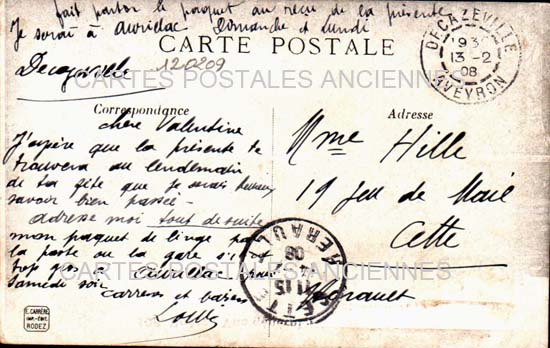 fait partir le paquet au reçu de la présente
Je serai à Aurillac Dimanche et Lundi
CARTE POSTALE
120209
Decazeville
DECAZEVILLE
93
13-2
08
AVEYRON
CARTES POSTALES ANCIENNES
Correspondance
Adresse
chère Valentine
J'espère que la présente te
trouvera au lendemain
de ta fête que je serais heureux
savoir bien passée -
adresse moi tout de suite
mon paquet de linge par
la poste ou la gare s'il
trop gros à Aurillac pour
Samedi soir
caresses et baisers
Mme Hille
19 Jeu de Mail
Cette
Hérault
CETTE
1115
08
HERAULT
CARTES POSTALES ANCIENNES
E. CARRÈRE
IMP.-EDIT.
RODEZ